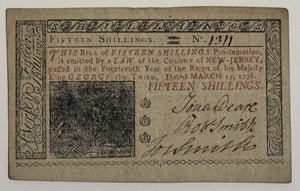 FIFTEEN SHILLINGS. No. 1311
THIS BILL of FIFTEEN SHILLINGS Proclamation,
is emitted by a LAW of the COLONY of NEW-JERSEY,
passed in the Fourteenth Year of the Reign of his Majesty
King GEORGE the THIRD. Dated MARCH 25, 1776.
FIFTEEN SHILLINGS.
Jona Deare
Robt Smith
Jo Smith